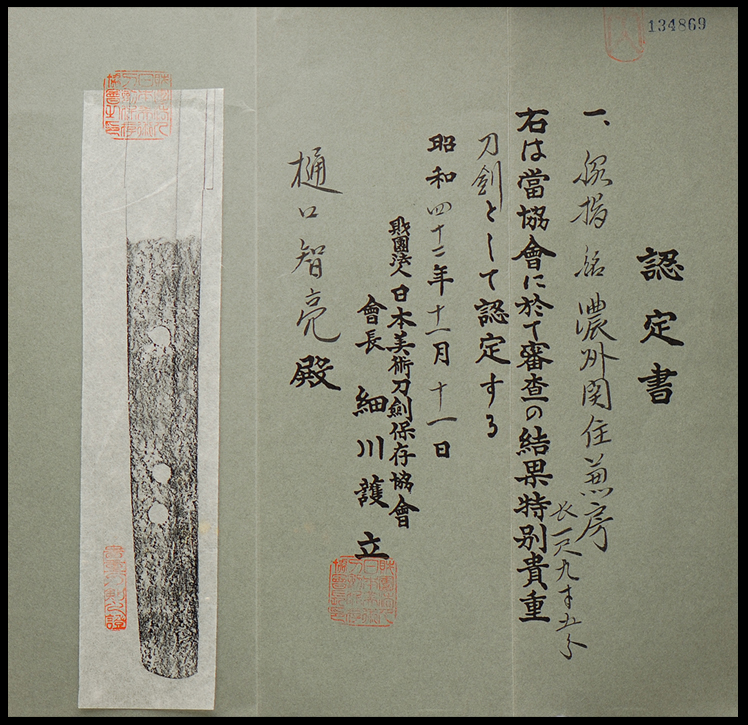 134869
認定書
一、脇指 銘 濃州関住兼房
長一尺九寸五分
右は當協會に於て審査の結果特別貴重
刀劍として認定する
昭和四十二年十一月十一日
財團法人日本美術刀劍保存協會
會長 細川護立
樋口智亮殿